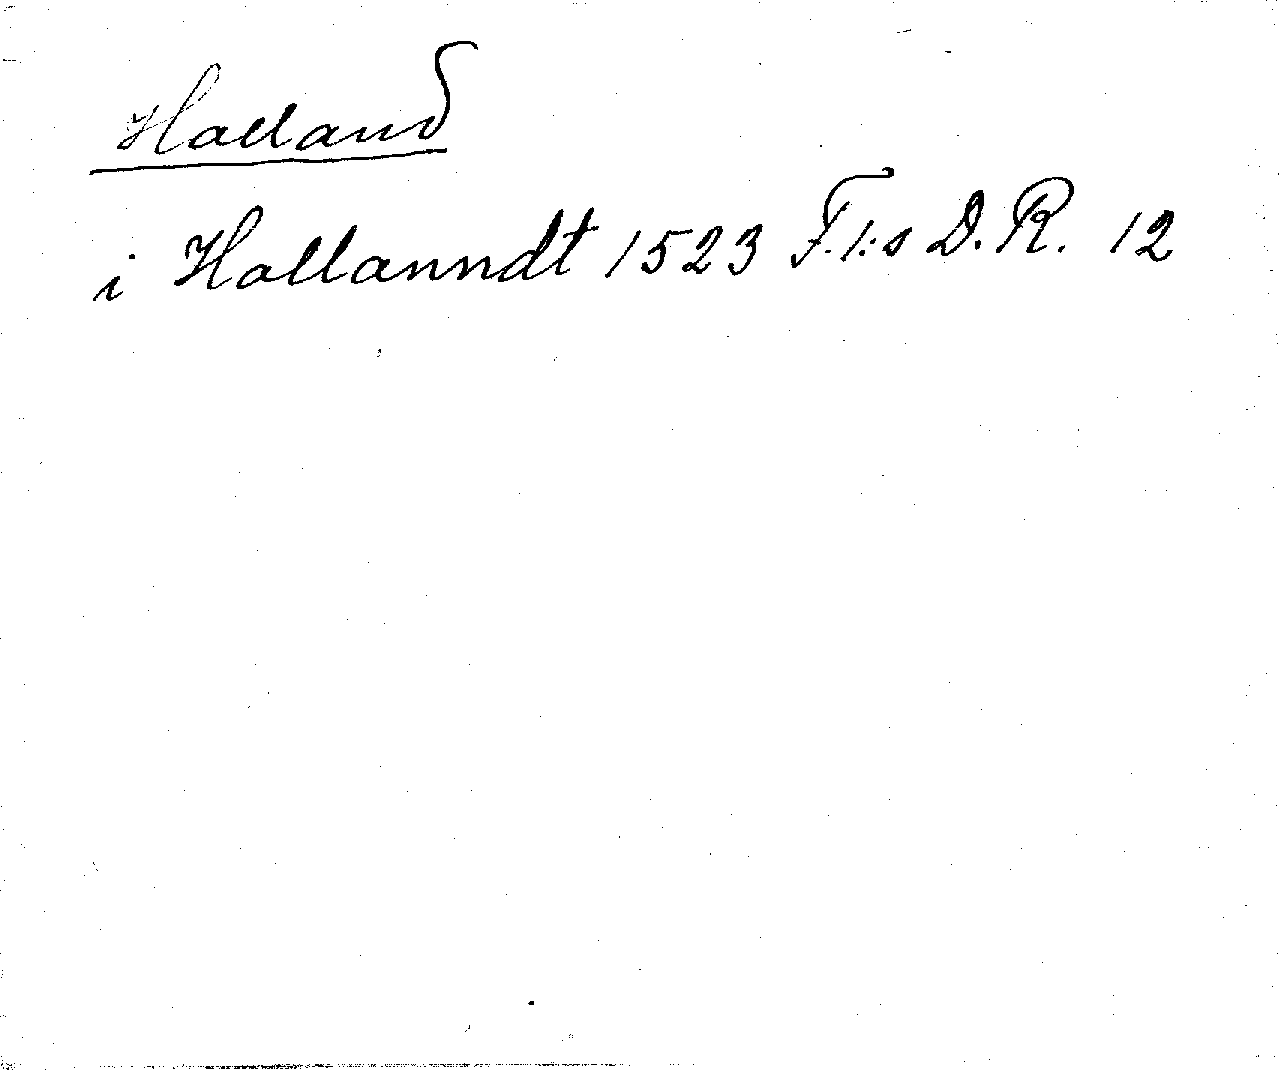 Halland
i Hallanndt 1523 F.1:s D.R. 12